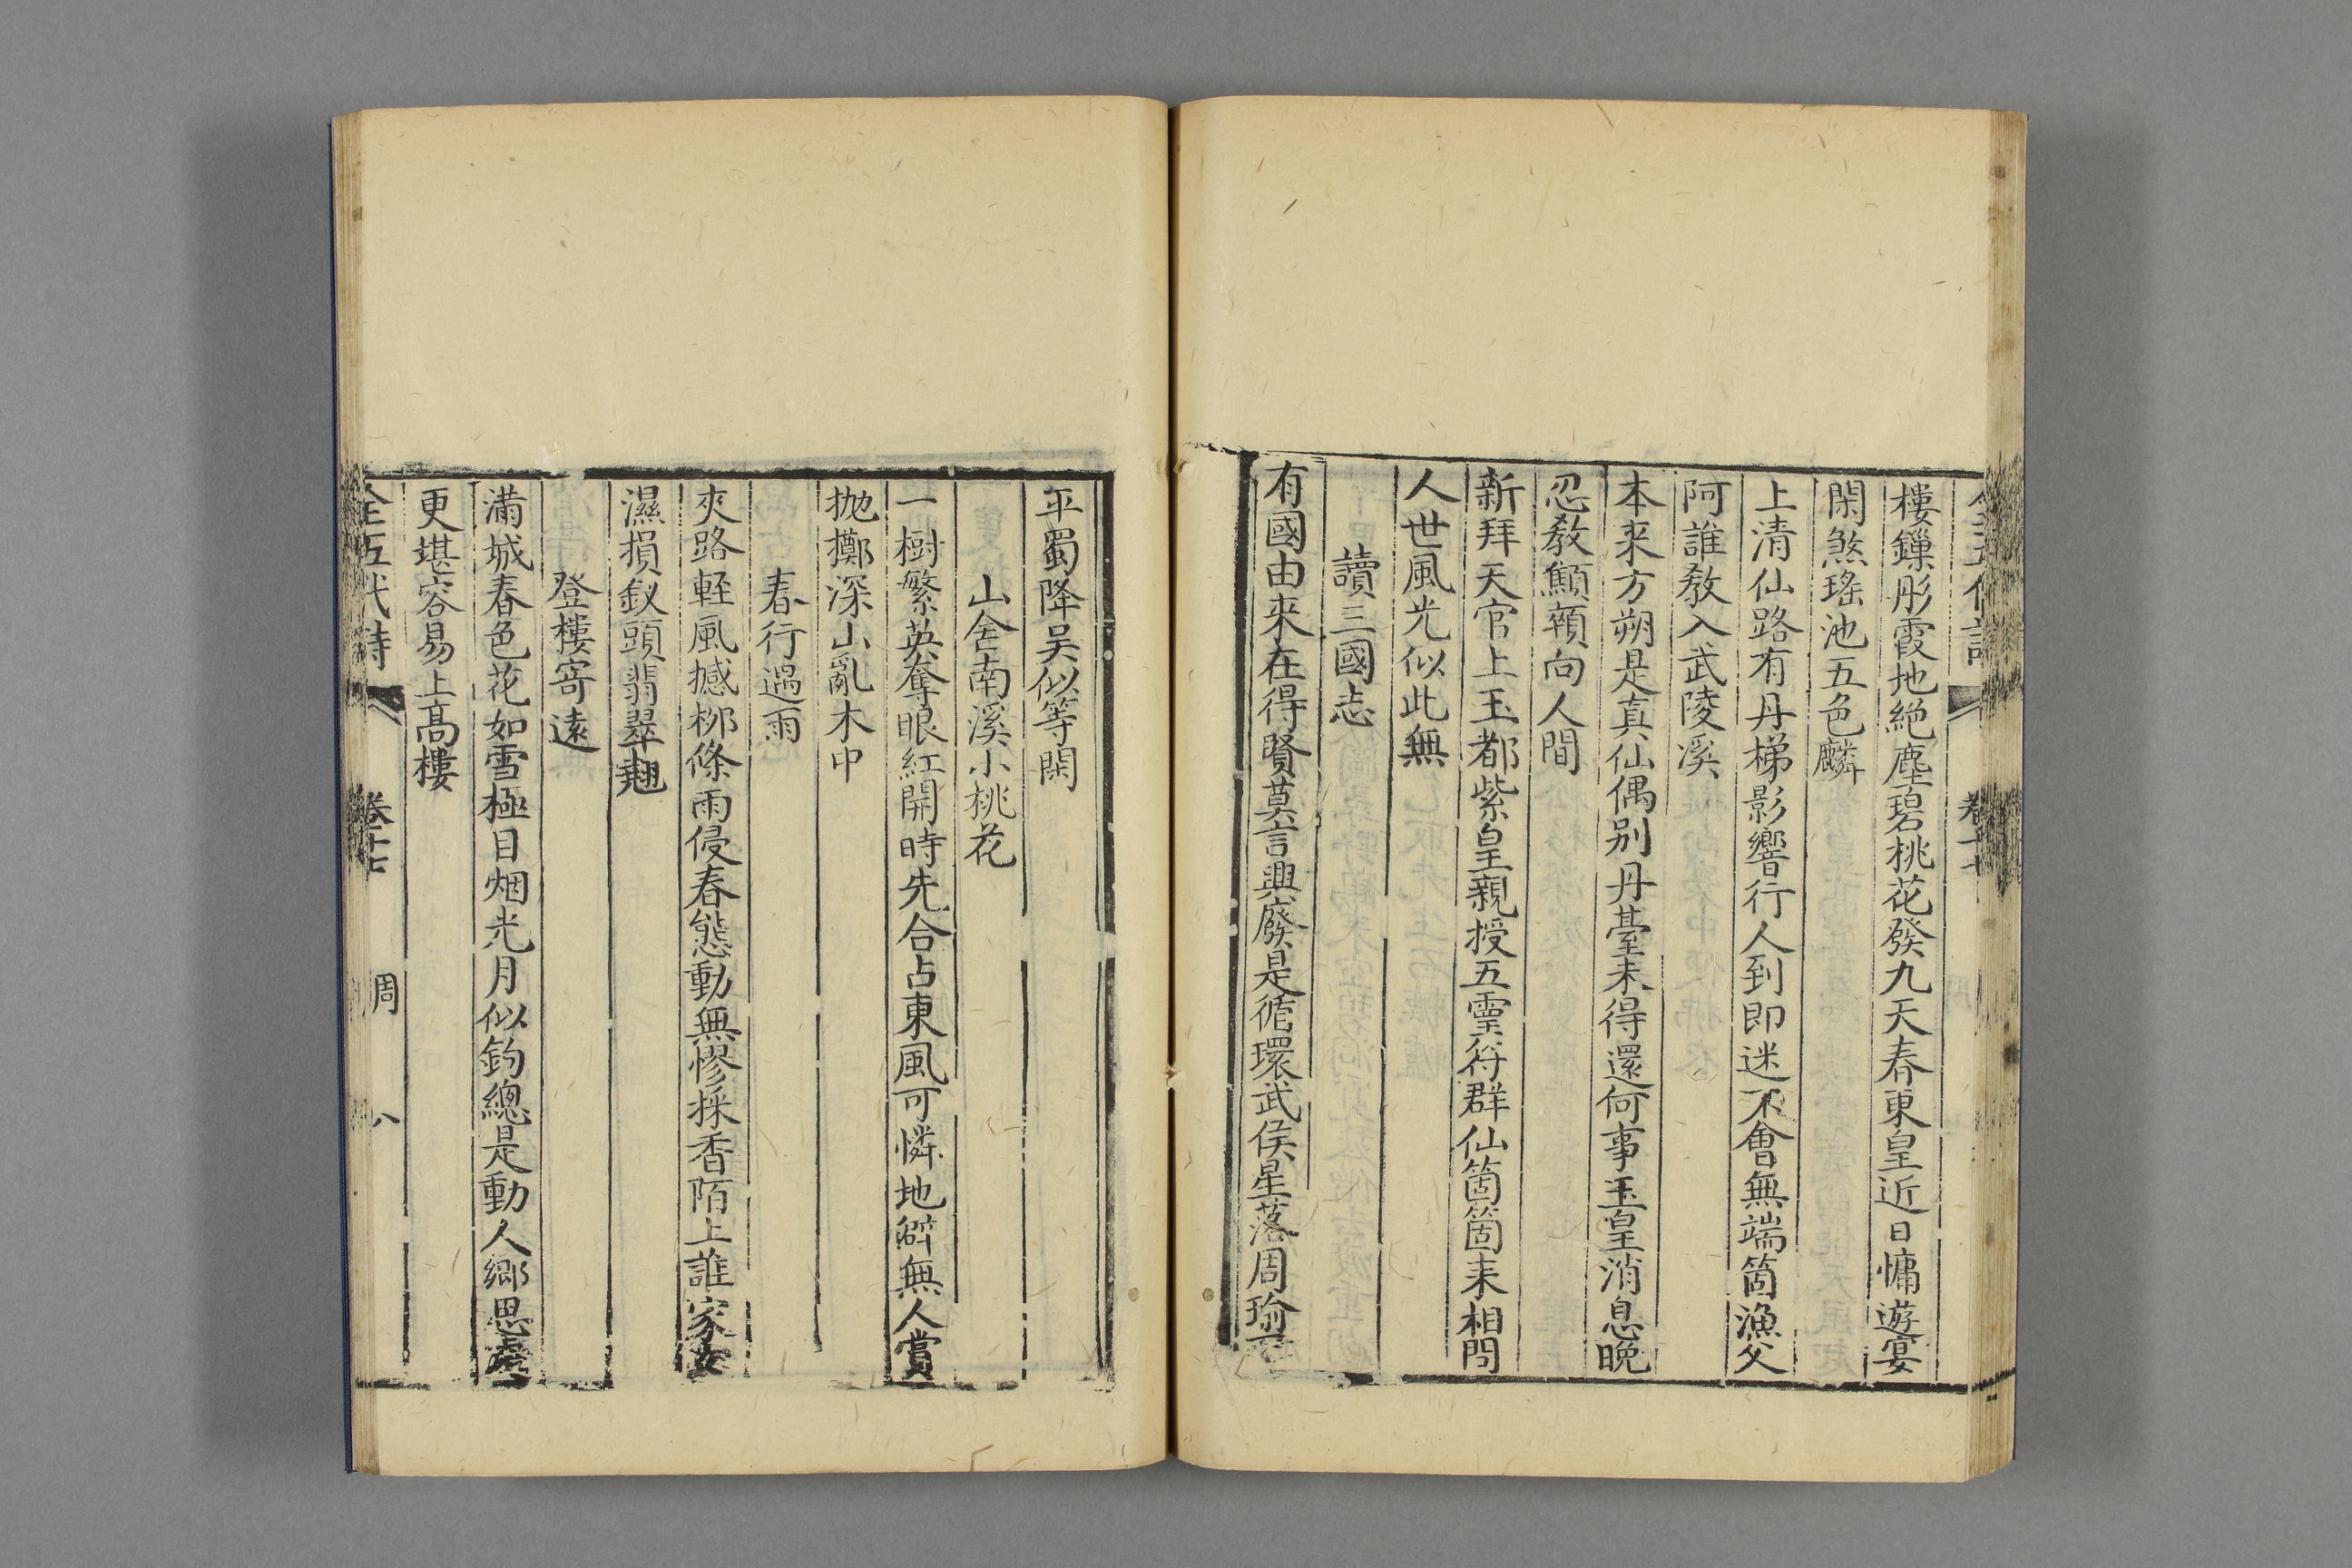 樓鏁彤霞地絕塵碧桃花發九天春東皇近日慵遊宴
閑煞瑤池五色麟
上清仙路有丹梯影響行人到即迷不會無端箇漁父
阿誰敎入武陵溪
本來方朔是真仙偶别丹臺未得還何事玉皇消息晚
忍敎顦顇向人間
新拜天官上玉都紫皇親授五靈符群仙箇箇来相問
人世風光似此無
讀三國志
有國由來在得賢莫言興廢是循環武侯星落周瑜死
平蜀降吴似等閑
山舍南溪小桃花
一樹繁英奪眼紅開時先合占東風可憐地僻無人賞
抛擲深山亂木中
春行遇雨
夾路軽風撼栁條雨侵春態動無憀採香陌上誰家女
濕損釵頭翡翠翹
登樓寄遠
滿城春色花如雪極目烟光月似鈎總是動人鄉思處
更堪容易上髙樓
全五代詩 卷十七 周 八